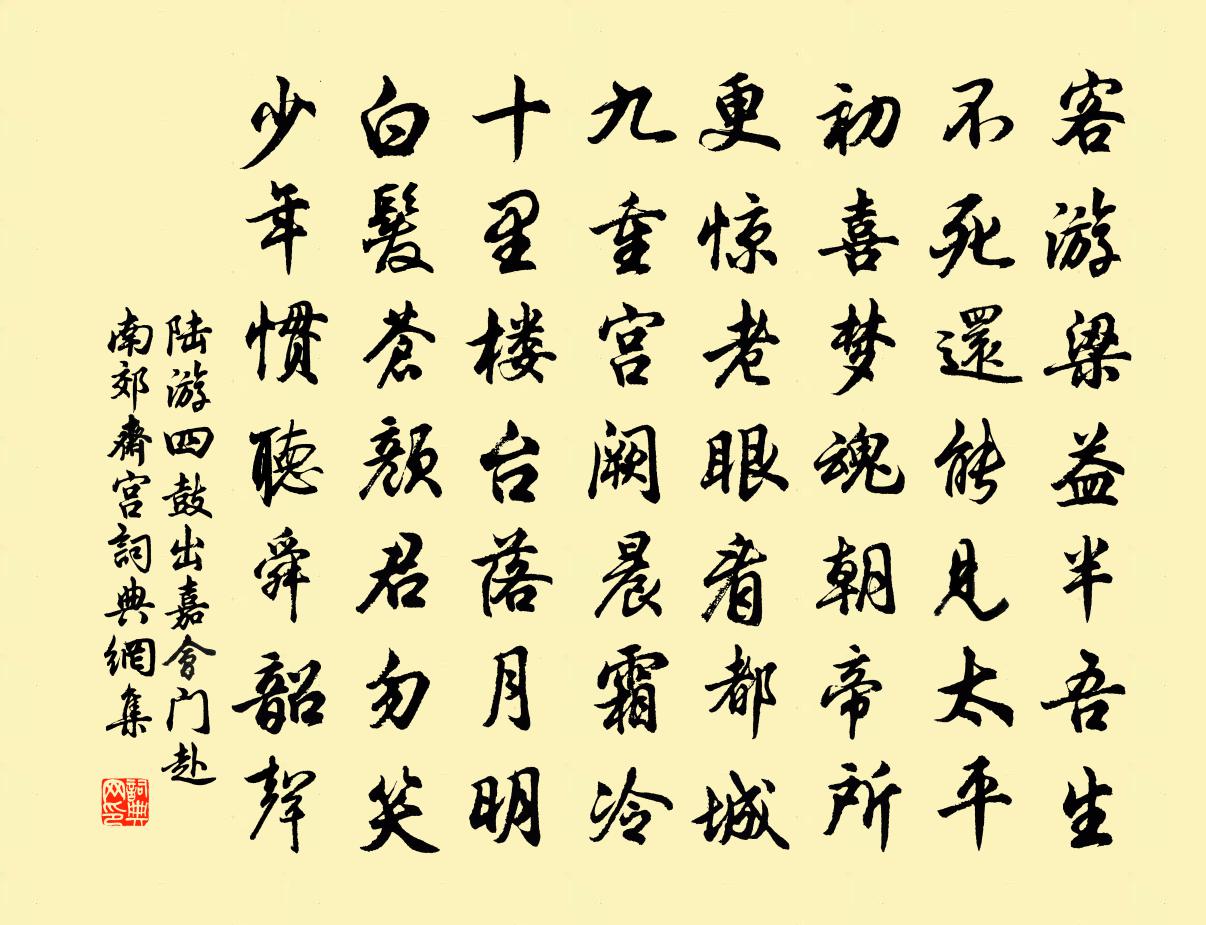 客游梁益半吾生
不死還能見太平
初喜梦魂朝帝所
更惊老眼看都城
九重宫阙晨霜冷
十里楼台落月明
白髮蒼顔君勿笑
少年惯聽舜韶聲
陆游四鼓出嘉會门赴
南郊齋宫詞典網集
詞典
网印